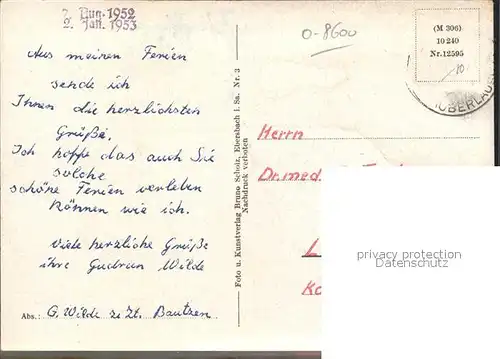 7. Aug. 1952
2. Jan. 1953
Aus meinen Ferien
sende ich
Ihnen die herzlichsten
Grüße.
Ich hoffe das auch Sie
solche
schöne Ferien verleben
können wie ich.
Viele herzliche Grüße
ihre Gudrun Wilde
Abs.: G. Wilde z. Zt. Bautzen.
Foto u. Kunstverlag Bruno Scholz, Ebersbach i. Sa. Nr. 3
Nachdruck verboten
O-8600
(M 306)
10 240
Nr. 12595
10
(OBERLAUS
Herrn
Dr. med.
L
Ka
privacy protection
Datenschutz